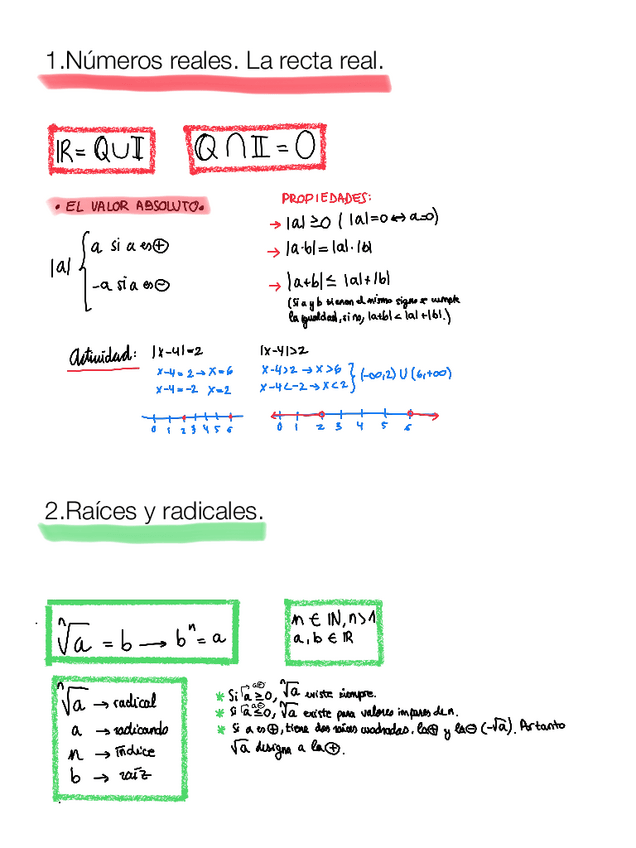 1.Números reales. La recta real.
ℝ = ℚ∪𝕀
ℚ ∩ 𝕀 = 0
• EL VALOR ABSOLUTO •
|a| { a si a es ⊕
-a si a es ⊖
PROPIEDADES:
→ |a| ≥0 ( |a|=0 ↔ a=0)
→ |a·b| = |a|·|b|
→ |a+b| ≤ |a|+|b|
(Si a y b tienen el mismo signo se cumple
la igualdad, si no, |a+b| < |a|+|b|.)
Actividad: |x-4|=2
x-4=2 → x=6
x-4=-2 x=2
0 1 2 3 4 5 6
|x-4|>2
x-4>2 → x>6
x-4<-2 → x<2 } (-∞,2) ∪ (6,+∞)
0 1 2 3 4 5 6
2.Raíces y radicales.
ⁿ√a = b → bⁿ = a
n ∈ ℕ, n>1
a, b ∈ ℝ
ⁿ√a → radical
a → radicando
n → índice
b → raíz
* Si a ≥0, ⁿ√a existe siempre.
* Si a ≤0, ⁿ√a existe para valores impares de n.
* Si a es ⊕, tiene dos raíces cuadradas, la ⊕ y la ⊖ (-√a). Por tanto
√a designa a la ⊕.